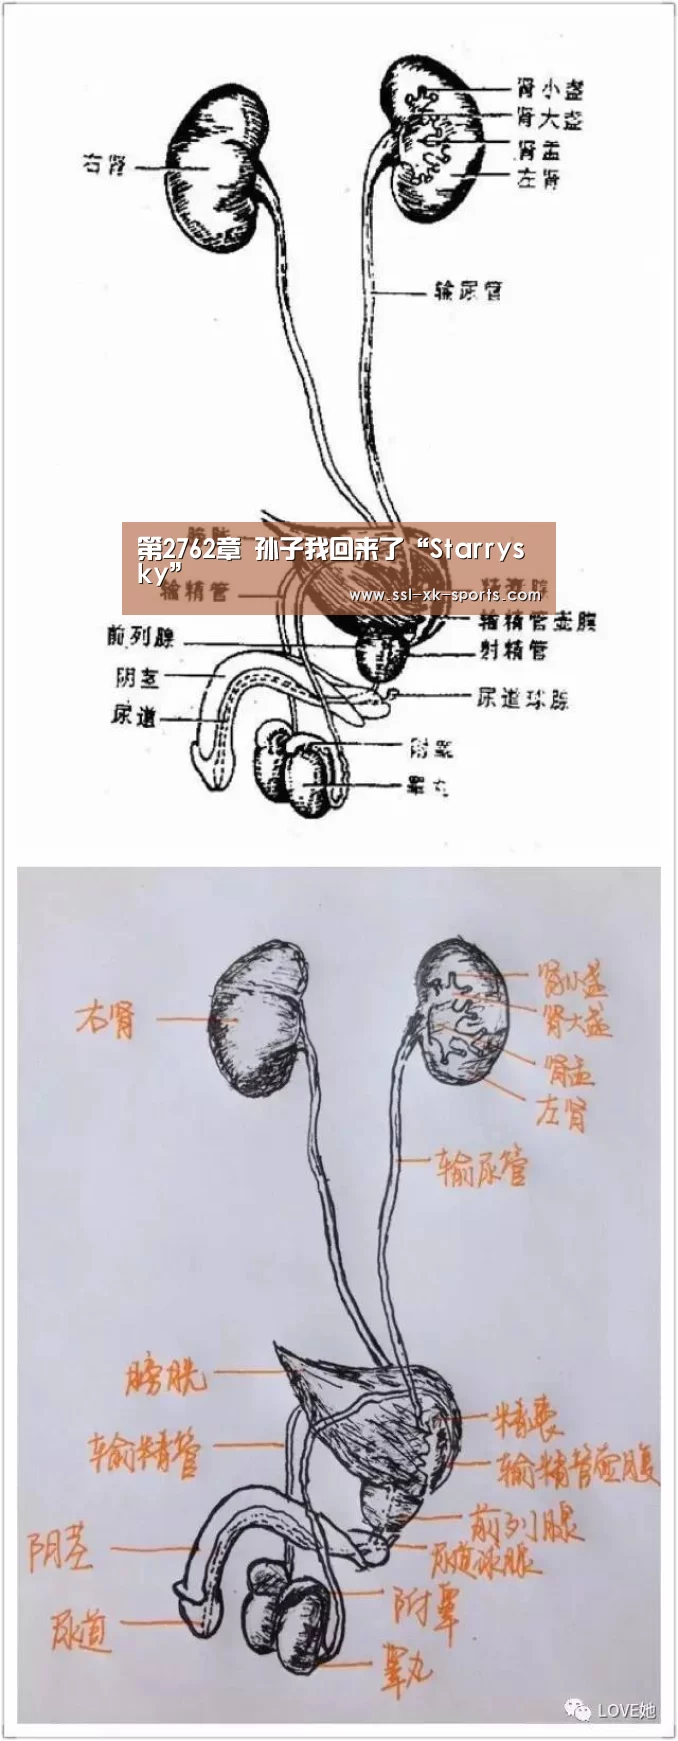 肾小盏
肾大盏
肾盂
左肾
右肾
输尿管
第2762章 孙子我回来了“Starrys
ky”
www.ssl-xk-sports.com
输精管
精囊腺
输精管壶腹
前列腺
射精管
阴茎
尿道
尿道球腺
附睾
睾丸
肾小盏
肾大盏
肾盂
左肾
右肾
输尿管
膀胱
精囊
输精管
输精管壶腹
前列腺
尿道球腺
阴茎
附睾
尿道
睾丸
LOVE她